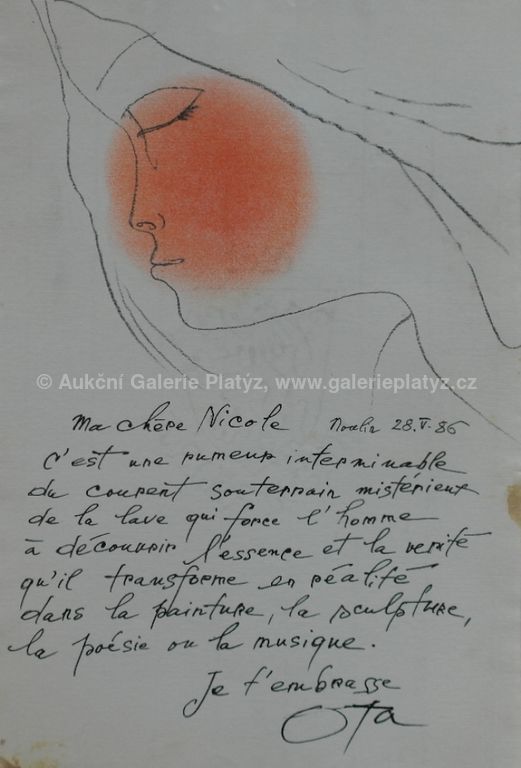 © Aukční Galerie Platýz, www.galerieplatyz.cz
Ma chère Nicole Moulin 28.V.86
C'est une rumeur interminable
du courent souterrain mistérieux
de la lave qui force l'homme
à découvrir l'essence et la verité
qu'il transforme en réalité
dans la painture, la sculpture,
la poésie ou la musique.
Je t'embrasse
Ota